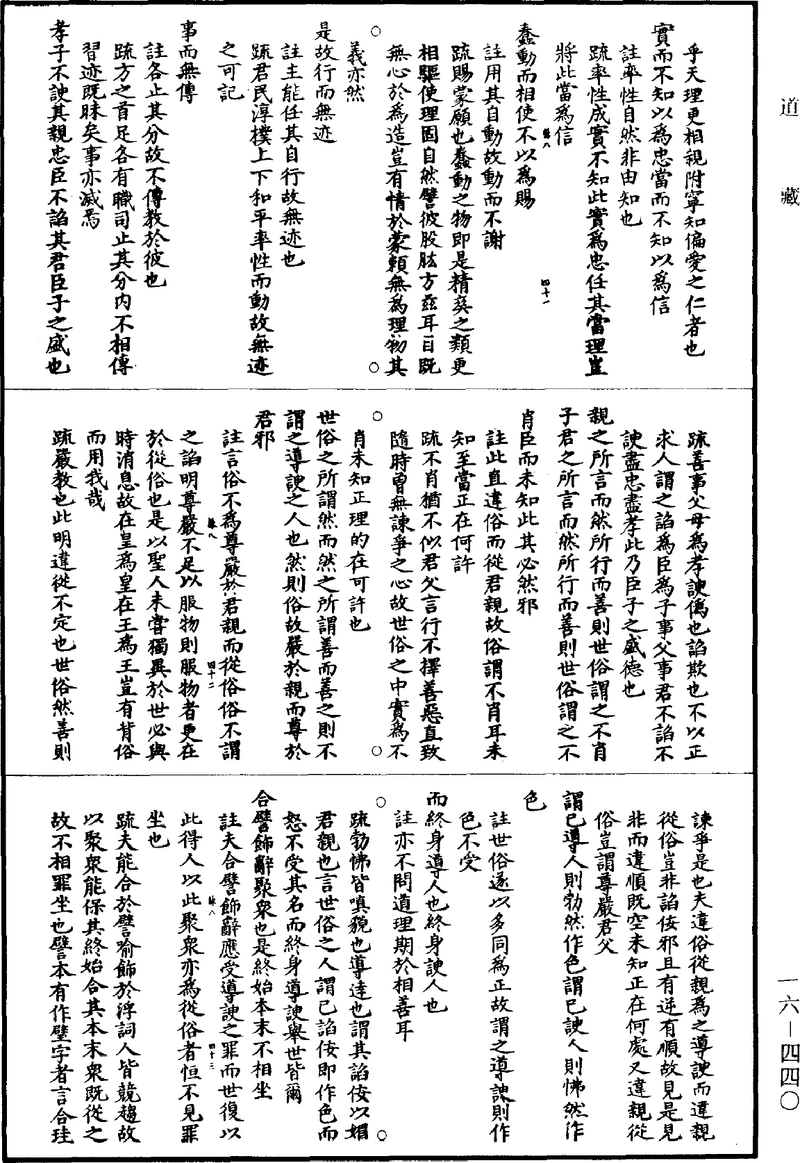 道藏
乎天理更相親附寧知偏愛之仁者也
實而不知以為忠當而不知以為信
註率性自然非由知也
疏率性成實不知此實為忠任其當理豈
將此當為信
蠢動而相使不以為賜
註用其自動故動而不謝
疏賜蒙願也蠢動之物即是精爽之類更
相驅使理固自然譬彼股肱方茲耳目既
無心於為造豈有情於蒙賴無為理物其
義亦然
是故行而無迹
註主能任其自行故無迹也
疏君民淳樸上下和平率性而動故無迹
之可記
事而無傳
註各止其分故不傳教於彼也
疏方之首足各有職司止其分內不相傳
習迹既昧矣事亦滅焉
孝子不諛其親忠臣不諂其君臣子之盛也
四十一
疏善事父母為孝諛偽也諂欺也不以正
求人謂之諂為臣為子事父事君不諂不
諛盡忠盡孝此乃臣子之盛德也
親之所言而然所行而善則世俗謂之不肖
子君之所言而然所行而善則世俗謂之不
肖臣而未知此其必然邪
註此直違俗而從君親故俗謂不肖耳未
知至當正在何許
疏不肖猶不似君父言行不擇善惡直致
隨時曾無諫爭之心故世俗之中實為不
肖未知正理的在可許也
世俗之所謂然而然之所謂善而善之則不
謂之導諛之人也然則俗故嚴於親而尊於
君邪
註言俗不為尊嚴於君親而從俗俗不謂
之諂明尊嚴不足以服物則服物者更在
於從俗也是以聖人未嘗獨異於世必與
時消息故在皇為皇在王為王豈有背俗
而用我哉
疏嚴教也此明違從不定也世俗然善則
四十二
諫爭是也夫違俗從親為之導諛而違親
從俗豈非諂佞邪且有逆有順故見是見
非而違順既空未知正在何處又違親從
俗豈謂尊嚴君父
謂己導人則勃然作色謂己諛人則怫然作
色
註世俗遂以多同為正故謂之導諛則作
色不受
而終身導人也終身諛人也
註亦不問道理期於相善耳
疏勃怫皆嗔貌也導達也謂其諂佞以媚
君親也言世俗之人謂己諂佞即作色而
怒不受其名而終身導諛舉世皆爾
合譬飾辭聚眾也是終始本末不相坐
註夫合譬飾辭應受導諛之罪而世復以
此得人以此聚眾亦為從俗者恒不見罪
坐也
疏夫能合於譬喻飾於浮詞人皆競趨故
以聚眾能保其終始合其本末眾既從之
故不相罪坐也譬本有作璧字者言合珪
四十三
一六—四四〇